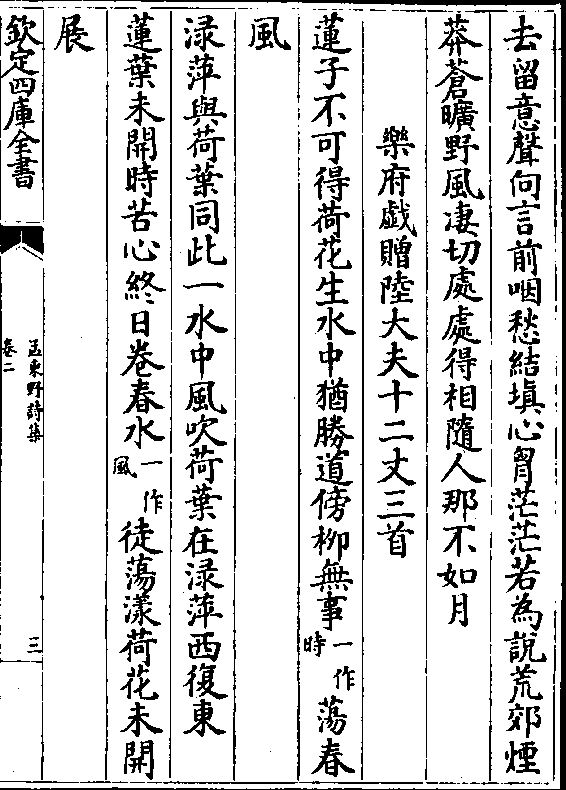 去留意聲向言前咽愁結填心胷茫茫若為說荒郊煙
莽蒼曠野風淒切處處得相隨人那不如月
樂府戯贈陸大夫十二丈三首
蓮子不可得荷花生水中猶勝道傍柳無事一作時蕩春
風
渌萍與荷葉同此一水中風吹荷葉在渌萍西復東
蓮葉未開時苦心終日卷春水一作風徒蕩漾荷花未開
展
欽定四庫全書
孟東野詩集
卷二
三